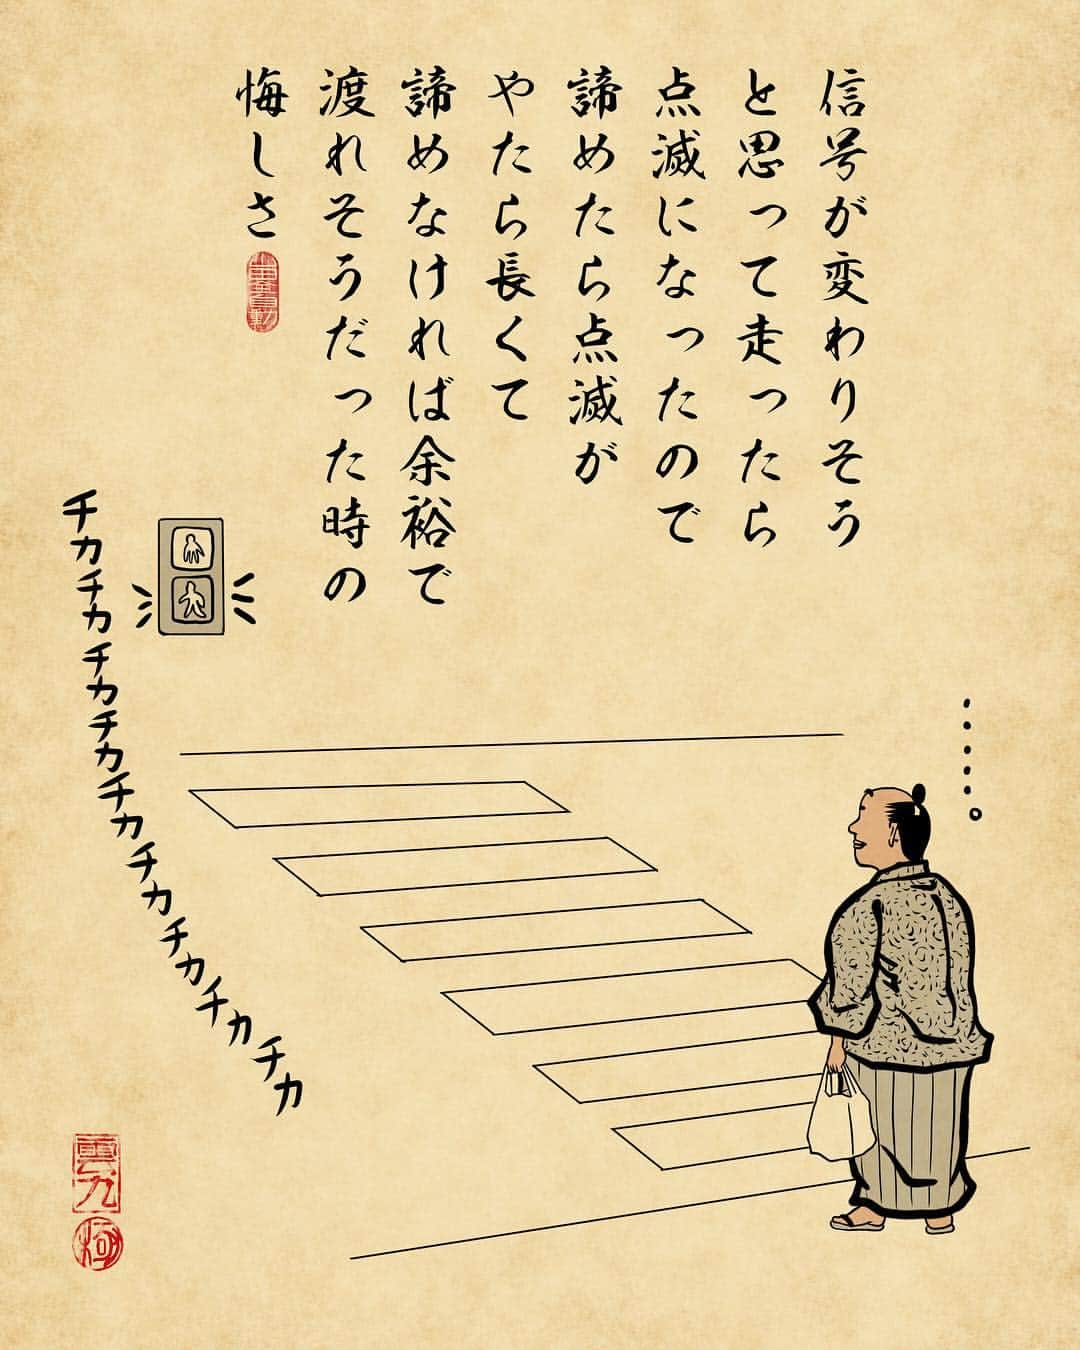 信号が変わりそう
と思って走ったら
点滅になったので
諦めたら点滅が
やたら長くて
諦めなければ余裕で
渡れそうだった時の
悔しさ
チカチカチカチカチカチカチカチカチカ